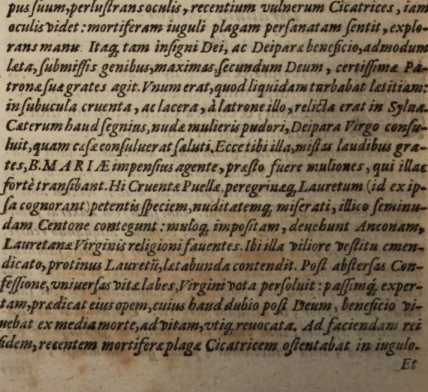 pus suum, perlustrans oculis, recentium vulnerum Cicatrices, iam
oculis videt: mortiferam iuguli plagam persanatam sentit, explo-
rans manu. Itaq; tam insigni Dei, ac Deiparæ beneficio, admodum
læta, submissis genibus, maximas, secundum Deum, certissimæ Pa-
tronæ suæ grates agit. Vnum erat, quod liquidam turbabat lætitiam:
in subucula cruenta, ac lacera, à latrone illo, relicta erat in Sylua.
Cæterum haud segnius, nudæ mulieris pudori, Deipara Virgo consu-
luit, quam cæsæ consuluerat saluti. Ecce tibi illa, mistas laudibus gra-
tes, B. MARIÆ impensius agente, præsto fuere muliones, qui illac
fortè transibant. Hi Cruentæ Puellæ, peregrinæq; Lauretum (id ex ip-
sa cognorant) petentis speciem, nuditatemq; miserati, illico seminu-
dam Centone contegunt: muloq; impositam, deuehunt Anconam,
Lauretanæ Virginis religioni fauentes. Ibi illa viliore vestitu emen-
dicato, protinus Lauretũ, lætabunda contendit. Post abstersas Con-
fessione, vniuersas vitæ labes, Virgini vota persoluit: passimq; exper-
tam, prædicat eius opem, cuius haud dubio post Deum, beneficio vi-
uebat ex media morte, ad vitam, vtiq; reuocata. Ad faciendam rei
fidem, recentem mortiferæ plagæ Cicatricem ostentabat in iugulo.
Et